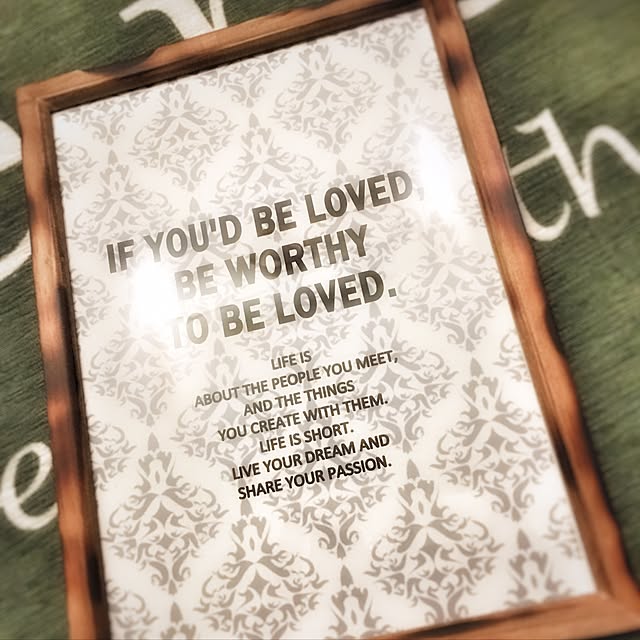 IF YOU'D BE LOVED,
BE WORTHY
TO BE LOVED.
LIFE IS
ABOUT THE PEOPLE YOU MEET,
AND THE THINGS
YOU CREATE WITH THEM.
LIFE IS SHORT.
LIVE YOUR DREAM AND
SHARE YOUR PASSION.